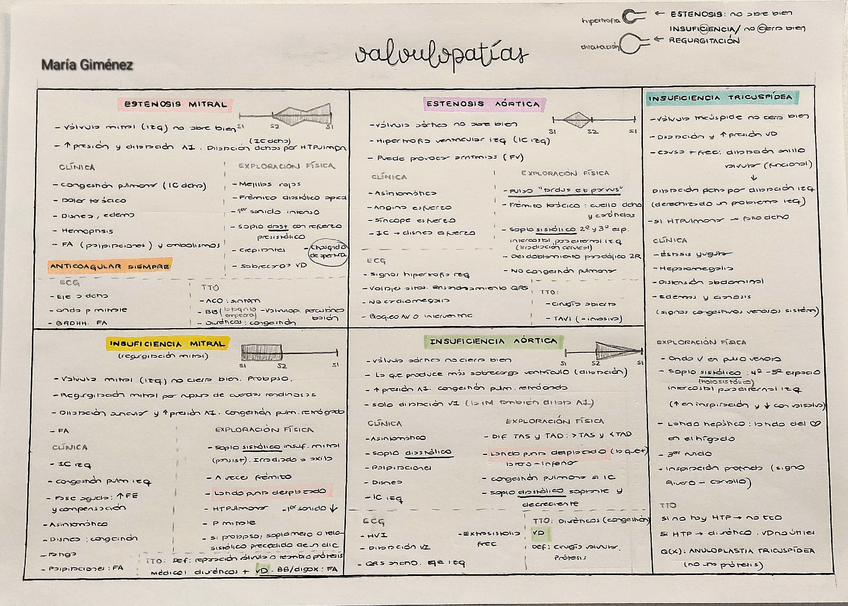 María Giménez
valvulopatías
hipertrofia
dilatación
← ESTENOSIS: no abre bien
INSUFICIENCIA/ no cierra bien
← REGURGITACIÓN
ESTENOSIS MITRAL
S1 S2 S1
- Válvula mitral (izq) no abre bien
(IC dcha)
- ↑ presión y dilatación AI. Dilatación dcha por HTPulmon
CLÍNICA
- Congestión pulmonar (IC dcha)
- Dolor torácico
- Disnea, edema
- Hemoptisis
- FA (palpitaciones) y embolismos
ANTICOAGULAR SIEMPRE
EXPLORACIÓN FÍSICA
- Mejillas rojas
- Frémito diastólico apical
- 1er sonido intenso
- Soplo diast con refuerzo
presistólico
- Crepitantes
- Chasquido
de apertura
- Sobrecarga VD
ECG
- Eje a dcha
- onda p mitrale
- BRDHH. FA
TTO
- ACO: sintrom
- Diuréticos: congestión
ESTENOSIS AÓRTICA
S1 S2 S1
- Válvula aórtica no abre bien
- Hipertrofia ventricular izq (IC izq)
- Puede provocar arritmias (FV)
CLÍNICA
- Asintomático
- Angina esfuerzo
- Síncope esfuerzo
- IC → disnea esfuerzo
EXPLORACIÓN FÍSICA
- PULSO "tardus et parvus"
- Frémito torácico: cuello dcha
y carótidas
- Soplo sistólico 2º y 3º esp.
intercostal paraesternal izq
(irradiación cervical)
- Desdoblamiento paradójico 2R
- No congestión pulmonar
ECG
- Signos hipertrofia izq
- Voltaje alto, ensanchamiento QRS
- No cardiomegalia
- Bloqueo AV o interventric
TTO:
- Cirugía abierta
- TAVI (- invasiva)
INSUFICIENCIA TRICUSPÍDEA
- Válvula tricúspide no cierra bien
- Dilatación y ↑ presión VD
- Causa + frec: dilatación anillo
valvular (funcional)
↓
Dilatación dcha por dilatación izq
(derecha tiene un problema izq)
- Si HTPulmonar → fallo dcho
CLÍNICA
- Éstasis yugular
- Hepatomegalia
- Distensión abdominal
- Edemas y cianosis
(signos congestivos venosos sistém)
EXPLORACIÓN FÍSICA
- Onda V en pulso venoso
- Soplo sistólico: 4º-5º espacio
(holosistólico)
intercostal paraesternal izq
(↑ en inspiración y ↓ con valsalva)
- Latido hepático: latido del ♡
en el hígado
- 3er ruido
- Inspiración profunda (signo
Rivero-Carvallo)
TTO
Si no hay HTP → no tto
Si HTP → diurético. VD no útiles
QCX: ANULOPLASTIA TRICUSPÍDEA
(no una prótesis)
INSUFICIENCIA MITRAL
(regurgitación mitral)
S1 S2 S1
- Válvula mitral (izq) no cierra bien. Prolapso.
- Regurgitación mitral por rotura de cuerdas tendinosas
- Dilatación auricular y ↑ presión AI. Congestión pulm. retrógrada
- FA
CLÍNICA
- IC izq
- Congestión pulm izq
- Fase aguda: ↑ FE
y compensación
- Asintomático
- Disnea: congestión
- Fatiga
- Palpitaciones: FA
EXPLORACIÓN FÍSICA
- Soplo sistólico insuf. mitral
(pansist). Irradiado a axila
- A veces frémito
- Latido punta desplazado
- HTPulmonar
- 1er sonido ↓
- P mitrale
- Si prolapso: soplo meso o tele-
sistólico precedido de un clic
TTO: Def: reparación válvula o recambio prótesis
Médico: diuréticos + VD. BB/digox: FA
INSUFICIENCIA AÓRTICA
S1 S2 S1
- Válvula aórtica no cierra bien
- La que produce más sobrecarga ventrículo (dilatación)
- ↑ presión AI. Congestión pulm. retrógrada
- Solo dilatación VI (la IM también dilata AI)
CLÍNICA
- Asintomático
- Soplo diastólico
- Palpitaciones
- Disnea
- IC izq
EXPLORACIÓN FÍSICA
- DIF TAS y TAD: >TAS y <TAD
- Latido punta desplazado (izquet)
latero-inferior
- Congestión pulmonar si IC
- Soplo diastólico aspirante y
decreciente
ECG
- HVI
- Dilatación VI
- QRS ancho. Eje izq
- Extrasístoles
frec
TTO: Diuréticos (congestión)
VD
Def: cirugía valvular.
Prótesis